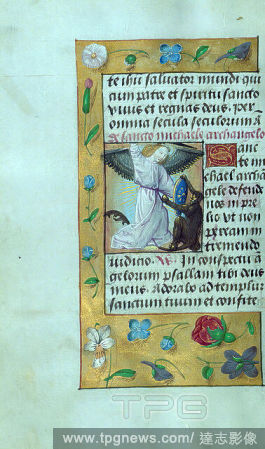 te ihū salvator mundi qui
cum patre et spiritu sancto
vivis et regnas deus. per
omnia secula seculorum a
de sancto michaele archangelo
Sanc
te mi
chael archā
gele defende
nos in pre
lio vt non
pereamus in
tremendo
iudicio. Vs. In conspectu ā
gelorum psallam tibi deus
meus. Adorabo ad templum
sanctum tuum et confite
TPG
www.tpgnews.com / 達志影像